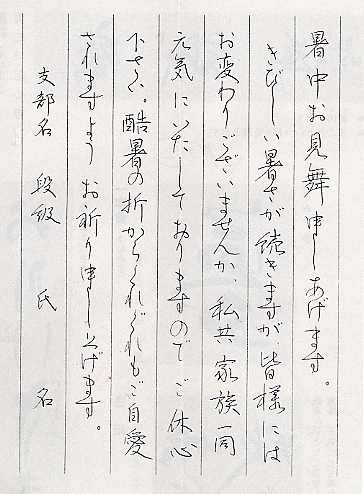 暑中お見舞申しあげます。
きびしい暑さが続きますが、皆様には
お変わりございませんか、私共家族一同
元気にいたしておりますのでご休心
下さい。酷暑の折からくれぐれもご自愛
されますようお祈り申し上げます。
支部名 段級 氏 名